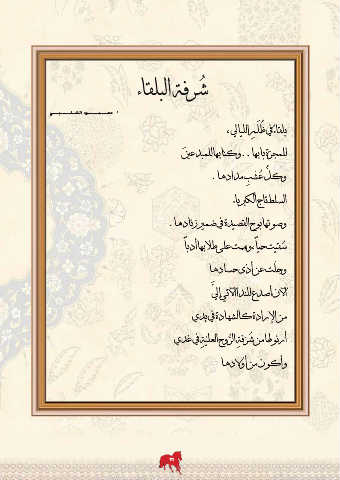 شُرفة البلقاء
بلقاءُ في ظُلَمِ الليالي،
للمجرّة بابها . . وكتابها للمبدعينَ
وكلُّ عُشبٍ مدادها .
السلط تاج الكبرياء
وصوتها بوح القصيدة في ضمير زنادها .
سُقيت حباً، ونمت على طلابها أدباً
وجلت عن أذى حسادها
الآن أصدع للندا الآتي إليَّ
من الإرادة كالشهادة في يدي
أرنو لها من شرفة الروح العليّة في غدي
وأكون من أولادها